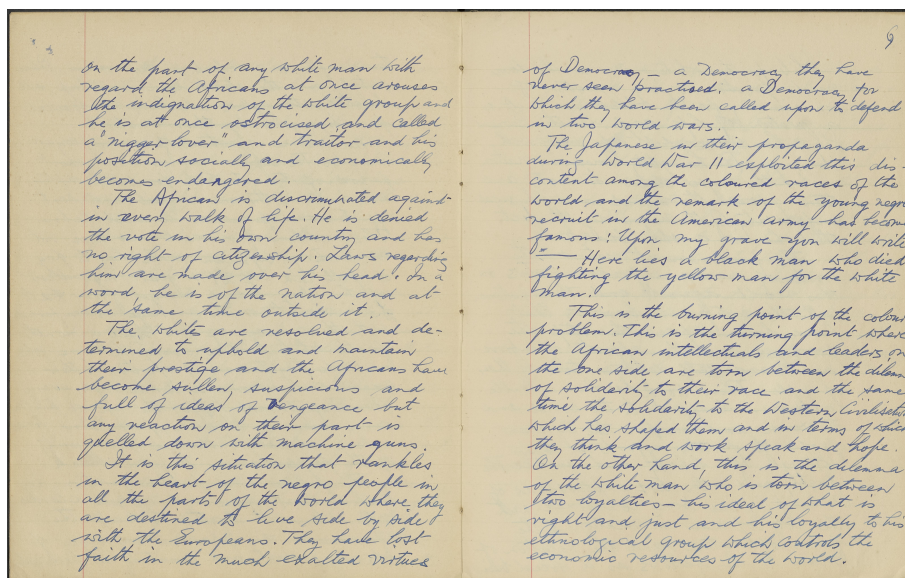 on the part of any white man with
regard the Africans at once arouses
the indignation of the white group and
he is at once ostrocised and called
a "nigger lover" and traitor and his
position socially and economically
becomes endangered.
The African is discriminated against
in every walk of life. He is denied
the vote in his own country and has
no right of citizenship. Laws regarding
him are made over his head. In a
word, he is of the nation and at
the same time outside it.
The white are resolved and de-
termined to uphold and maintain
their prestige and the Africans have
become sullen, suspicious and
full of ideas of vengeance but
any reaction on their part is
quelled down with machine guns
It is this situation that rankles
in the heart of the negro people in
all the parts of the world where they
are destined to live side by side
with the Europeans. They have lost
faith in the much exalted virtues
6
of Democracy – a Democracy they have
never seen practised. a Democracy for
which they have been called upon to defend
in two world wars.
The Japanese in their propaganda
during World War II exploited this dis-
content among the coloured races of the
world and the remark of the young negro
recruit in the American army has become
famous: Upon my grave you will write
"— Here lies a black man who died
fighting the yellow man for the white
man."
This is the burning point of the colour
problem. This is the turning point where
the African intellectuals and leaders on
the one side are torn between the dilemma
of solidarity to their race and the same
time the solidarity to the Western Civilisation
which has shaped them and in terms of which
they think and work speak and hope.
On the other hand, this is the dilemma
of the white man who is torn between
two loyalties – his ideal of what is
right and just and his loyalty to his
ethnological group which controls the
economic resources of the world.